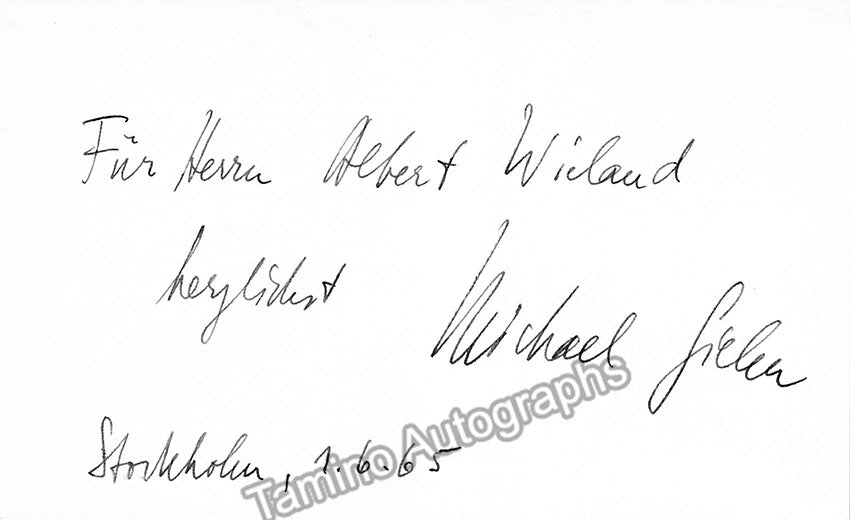 Für Herrn Albert Wieland
herzlichst
Michael Gielen
Stockholm, 1.6.65
Tamino Autographs